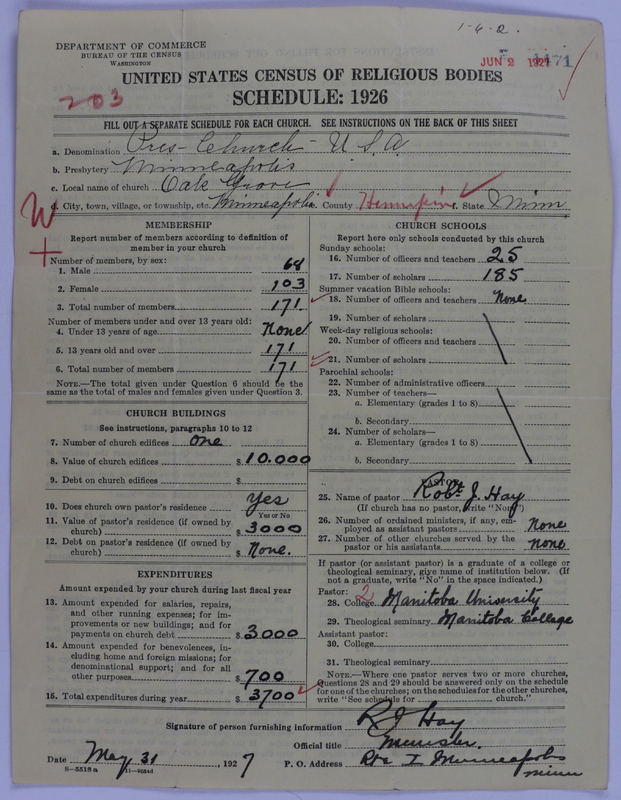 1-6-2.
DEPARTMENT OF COMMERCE
BUREAU OF THE CENSUS
WASHINGTON
JUN 2 1927
1471
UNITED STATES CENSUS OF RELIGIOUS BODIES
203
SCHEDULE: 1926
FILL OUT A SEPARATE SCHEDULE FOR EACH CHURCH. SEE INSTRUCTIONS ON THE BACK OF THIS SHEET
a. Denomination Pres- Church - U S A.
b. Presbytery Minneapolis
c. Local name of church Oak Grove
d. City, town, village, or township, etc. Minneapolis e. County Hennepin f. State Minn
MEMBERSHIP
Report number of members according to definition of member in your church
Number of members, by sex:
1. Male 68
2. Female 103
3. Total number of members 171.
Number of members under and over 13 years old:
4. Under 13 years of age None
5. 13 years old and over 171
6. Total number of members 171
NOTE.—The total given under Question 6 should be the same as the total of males and females given under Question 3.
CHURCH BUILDINGS
See instructions, paragraphs 10 to 12
7. Number of church edifices one
8. Value of church edifices $ 10.000
9. Debt on church edifices $
10. Does church own pastor's residence Yes
Yes or No
11. Value of pastor's residence (if owned by church) $ 3000
12. Debt on pastor's residence (if owned by church) $ None.
EXPENDITURES
Amount expended by church during last fiscal year
13. Amount expended for salaries, repairs, and other running expenses; for improvements or new buildings; and for payments on church debt $ 3.000
14. Amount expended for benevolences, including home and foreign missions; for denominational support; and for all other purposes $ 700
15. Total expenditures during year $ 3700
CHURCH SCHOOLS
Report here only schools conducted by this church
Sunday schools:
16. Number of officers and teachers 25
17. Number of scholars 185
Summer vacation Bible schools:
18. Number of officers and teachers None
19. Number of scholars
Week-day religious schools:
20. Number of officers and teachers
21. Number of scholars
Parochial schools:
22. Number of administrative officers
23. Number of teachers—
a. Elementary (grades 1 to 8)
b. Secondary
24. Number of scholars—
a. Elementary (grades 1 to 8)
b. Secondary
PASTOR
25. Name of pastor Robt. J. Hay
(If church has no pastor, write "None")
26. Number of ordained ministers, if any, employed as assistant pastors None
27. Number of other churches served by the pastor or his assistants None
If pastor (or assistant pastor) is a graduate of a college or theological seminary, give name of institution below. (If not a graduate, write "No" in the space indicated.)
Pastor: 2
28. College Manitoba University
29. Theological seminary Manitoba College
Assistant pastor:
30. College
31. Theological seminary
NOTE.—Where one pastor serves two or more churches, Questions 28 and 29 should be answered only on the schedule for one of the churches; on the schedules for the other churches, write "See schedule for ............ church."
Signature of person furnishing information R J Hay
Official title Minister.
Date May 31, 1927
P. O. Address Rte I Minneapolis
Minn
8-5518a